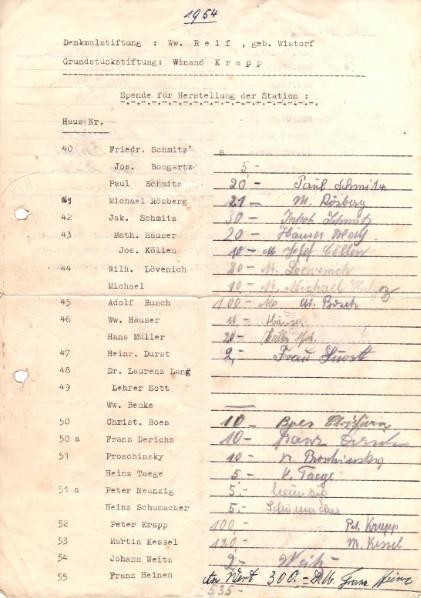 1954
Denkmalstiftung : Ww. R e i f , geb. Wistorf
Grundstückstiftung: Winand K r a p p
Spende für Herstellung der Station :
Haus Nr.
40 Friedr. Schmitz
Jos. Bongartz 5,-
Paul Schmitz 20 - Paul Schmitz
41 Michael Rösberg 21 - M. Rösberg
42 Jak. Schmitz 30 - Jakob Schmitz
43 Math. Häuser 20 - Häuser
Jos. Köllen 10 - M Josef Cöllen
44 Wilh. Lövenich 20 - M.
Michael 10,- M. Michael
45 Adolf Busch 100,- M. Ad. Busch
46 Ww. Häuser 10 - Häuser
Hans Müller 20 -
47 Heinr. Durst 2,- Frau Durst
48 Dr. Laurenz Lang
49 Lehrer Sott
Ww. Benke
50 Christ. Boes 10 - Boes
50 a Franz Derichs 10 - Franz
51 Proschinsky 10 -
Heinz Taege 5 - H. Taege
51 a Peter Neunzig 5.- Neunzig
Heinz Schumacher 5.- Schumacher
52 Peter Krapp 100,- Pet. Krapp
53 Martin Kessel 120 - M. Kessel
54 Johann Weitz 2 - Weitz
55 Franz Heinen Wert 300.- D.M. Franz Heinen
535-